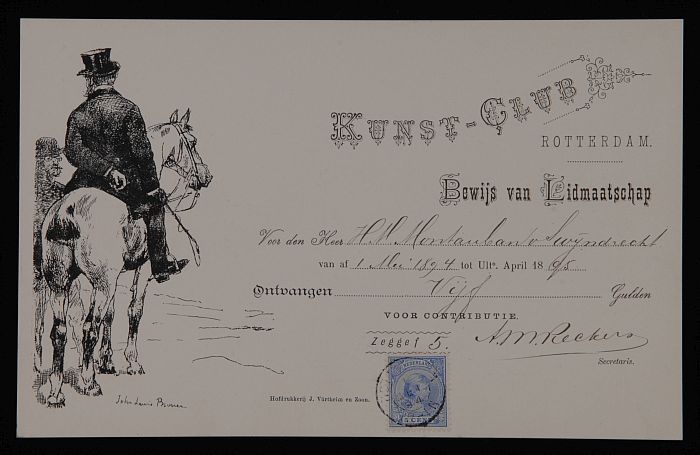 KUNST-CLUB
ROTTERDAM.
Bewijs van Lidmaatschap
Voor den Heer H. M. Montauban v. Swijndrecht
van af 1 Mei 1894 tot Ulto. April 1895
Ontvangen Vijf Gulden
VOOR CONTRIBUTIE.
Zegge f 5. A.M. Reckers
Secretaris.
NEDERLAND
5 CENT
Hofdrukkerij J. Vürtheim en Zoon.
John Lewis Brown